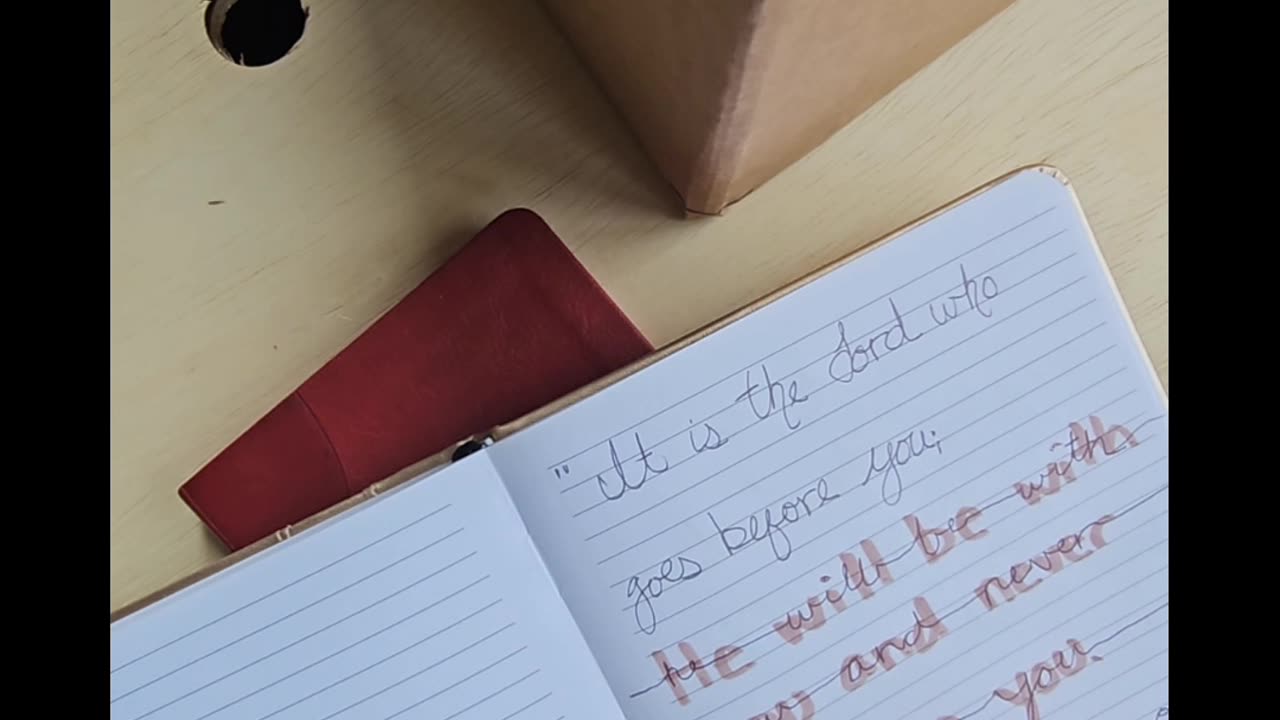 " It is the Lord who
goes before you;
He will be with
and never
you.